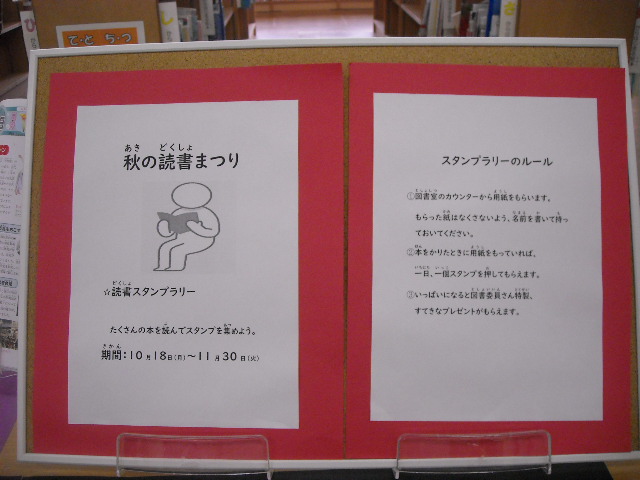 て・と ち・つ
秋の読書まつり
あき どくしょ
☆読書スタンプラリー
どくしょ
たくさんの本を読んでスタンプを集めよう。
期間：10月18日(月)～11月30日(火)
きかん
スタンプラリーのルール
①図書室のカウンターから用紙をもらいます。
もらった紙はなくさないよう、名前を書いて持っ
ておいてください。
②本をかりたときに用紙をもっていれば、
一日、一個スタンプを押してもらえます。
③いっぱいになると図書委員さん特製、
すてきなプレゼントがもらえます。